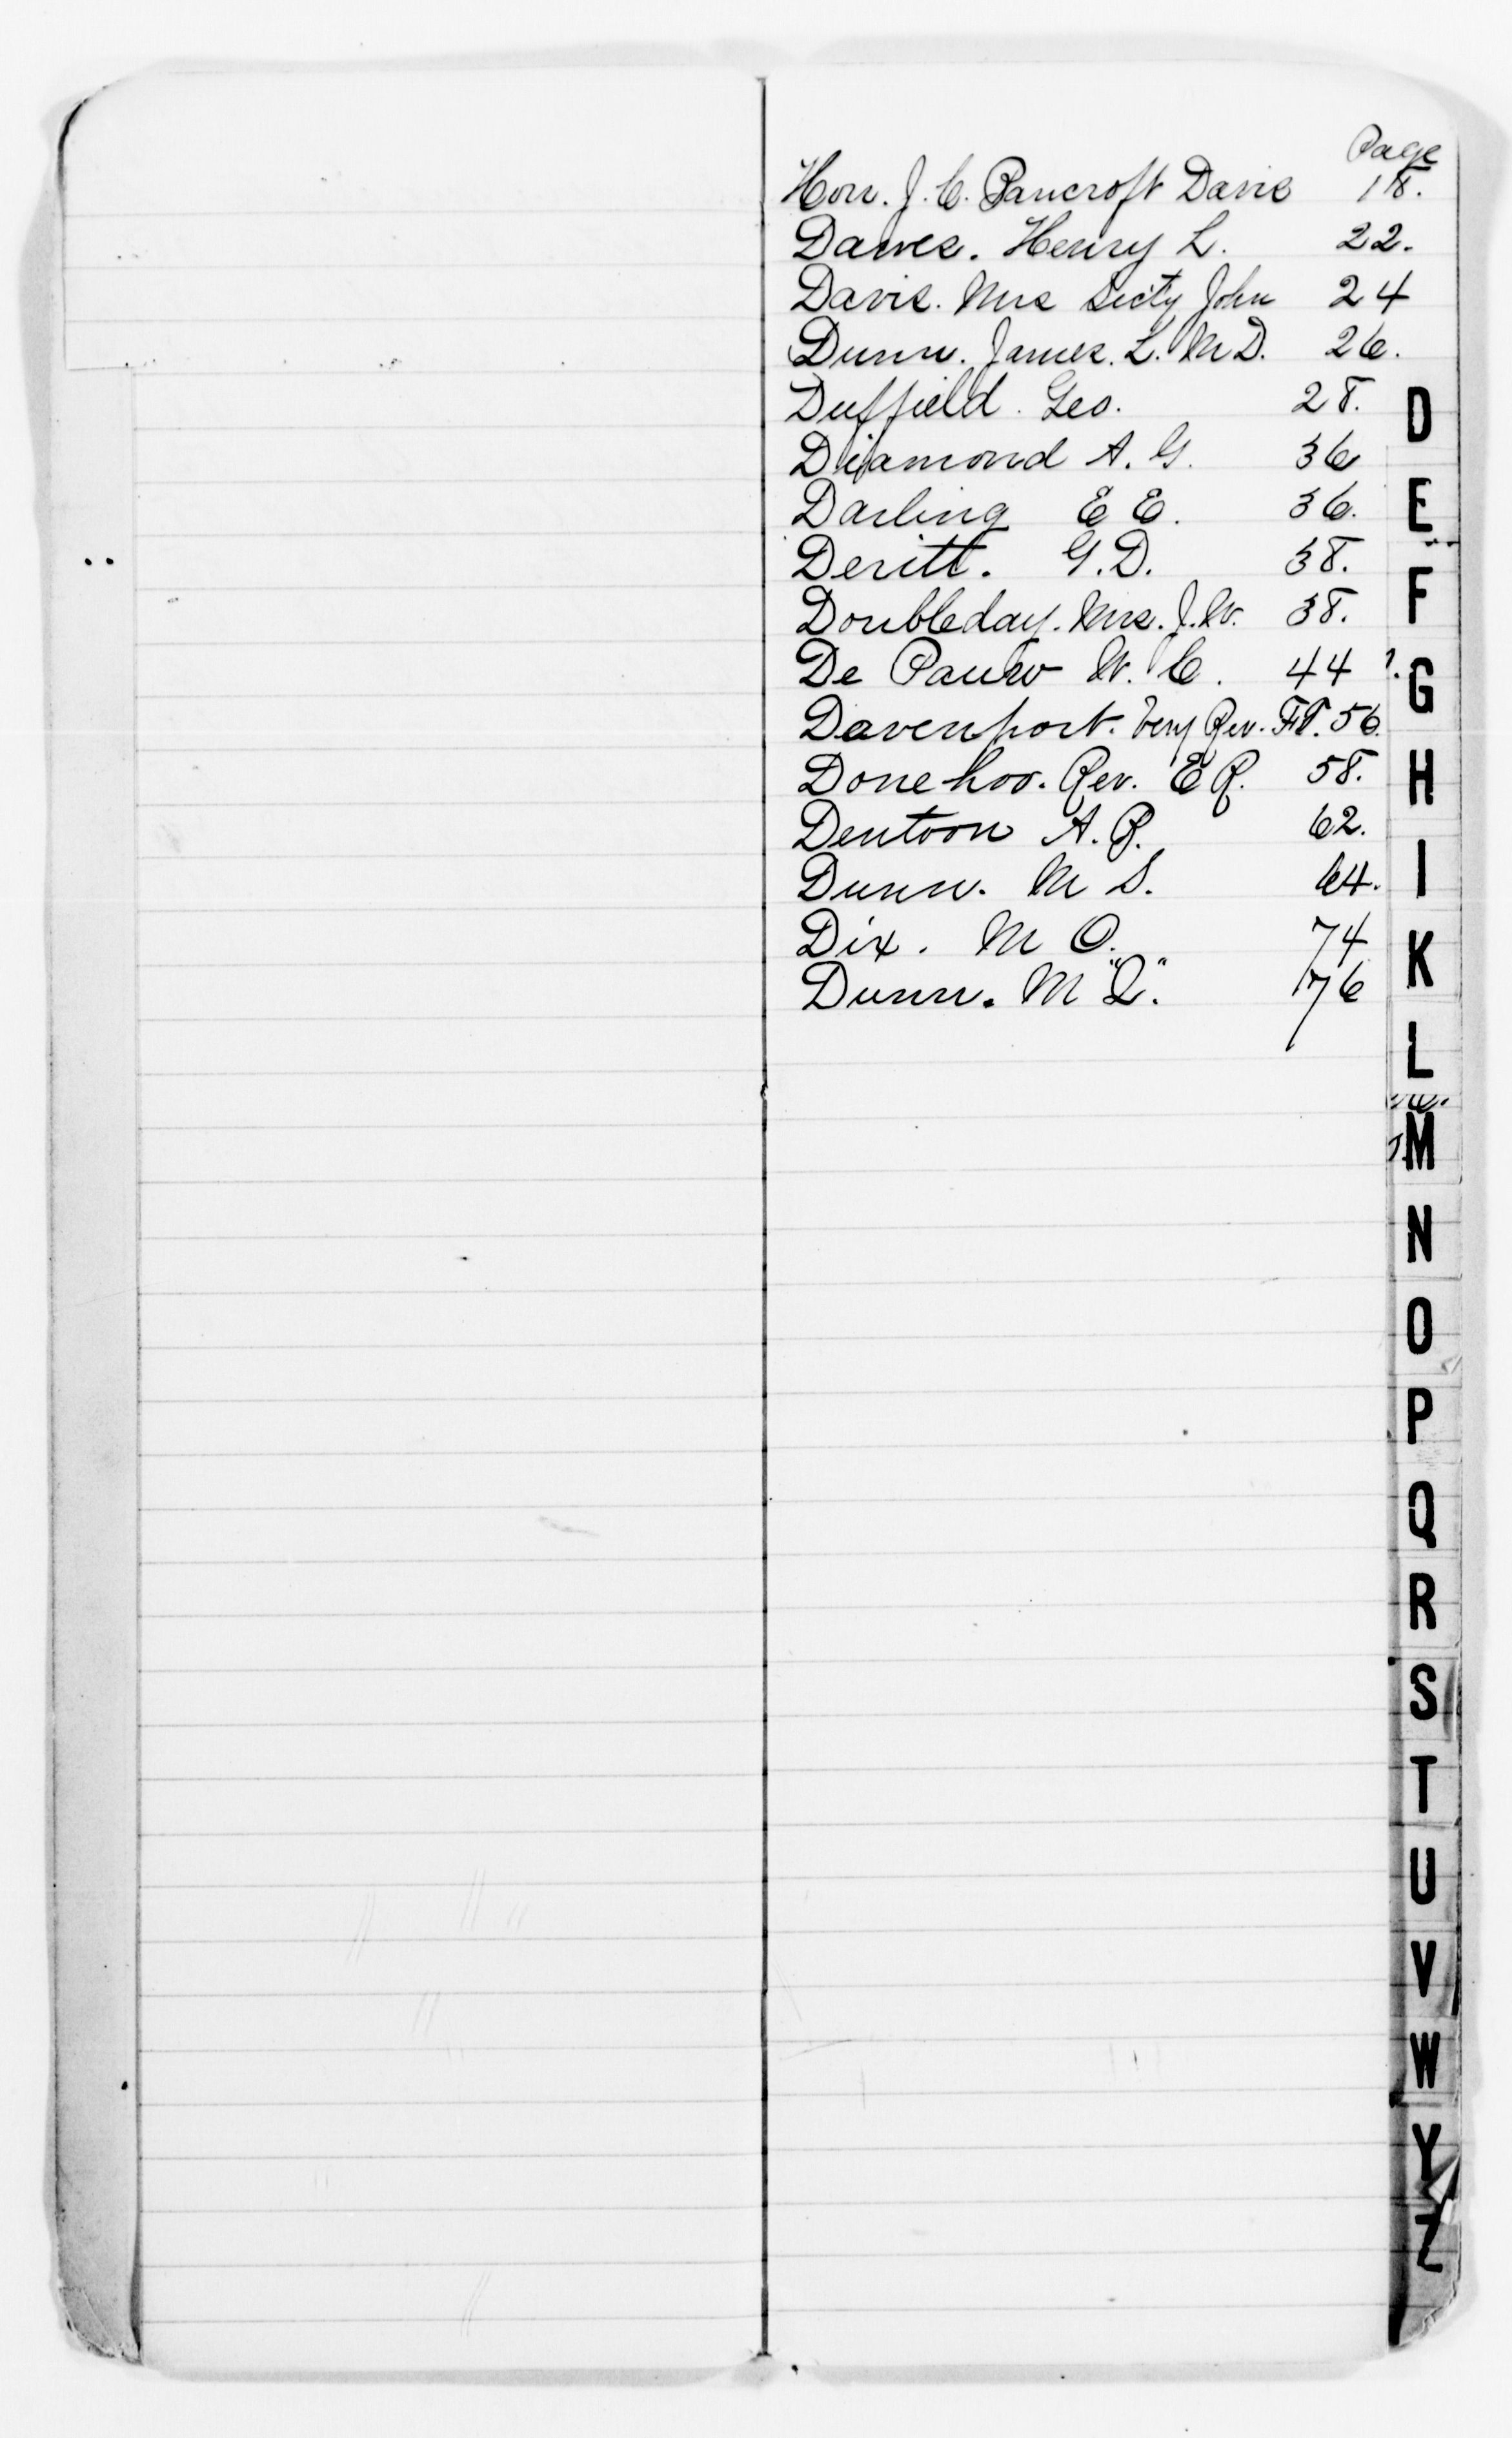 Page
Hon. J. C. Bancroft Davis 18.
Dawes. Henry L. 22.
Davis. Mrs Secty John 24
Dunn. James. L. M D. 26.
Duffield. Geo. 28.
Diamond A. G. 36
Darling E E. 36.
Deritt. G. D. 38.
Doubleday. Mrs. J. W. 38.
De Pauw W. C. 44
Davenport. Very Rev. 56.
Donehoo. Rev. E R. 58.
Dentoon A. P. 62.
Dunn. M S. 64.
Dix. M O. 74
Dunn. M "L." 76
D
E
F
G
H
I
K
L
M
N
O
P
Q
R
S
T
U
V
W
Y
Z